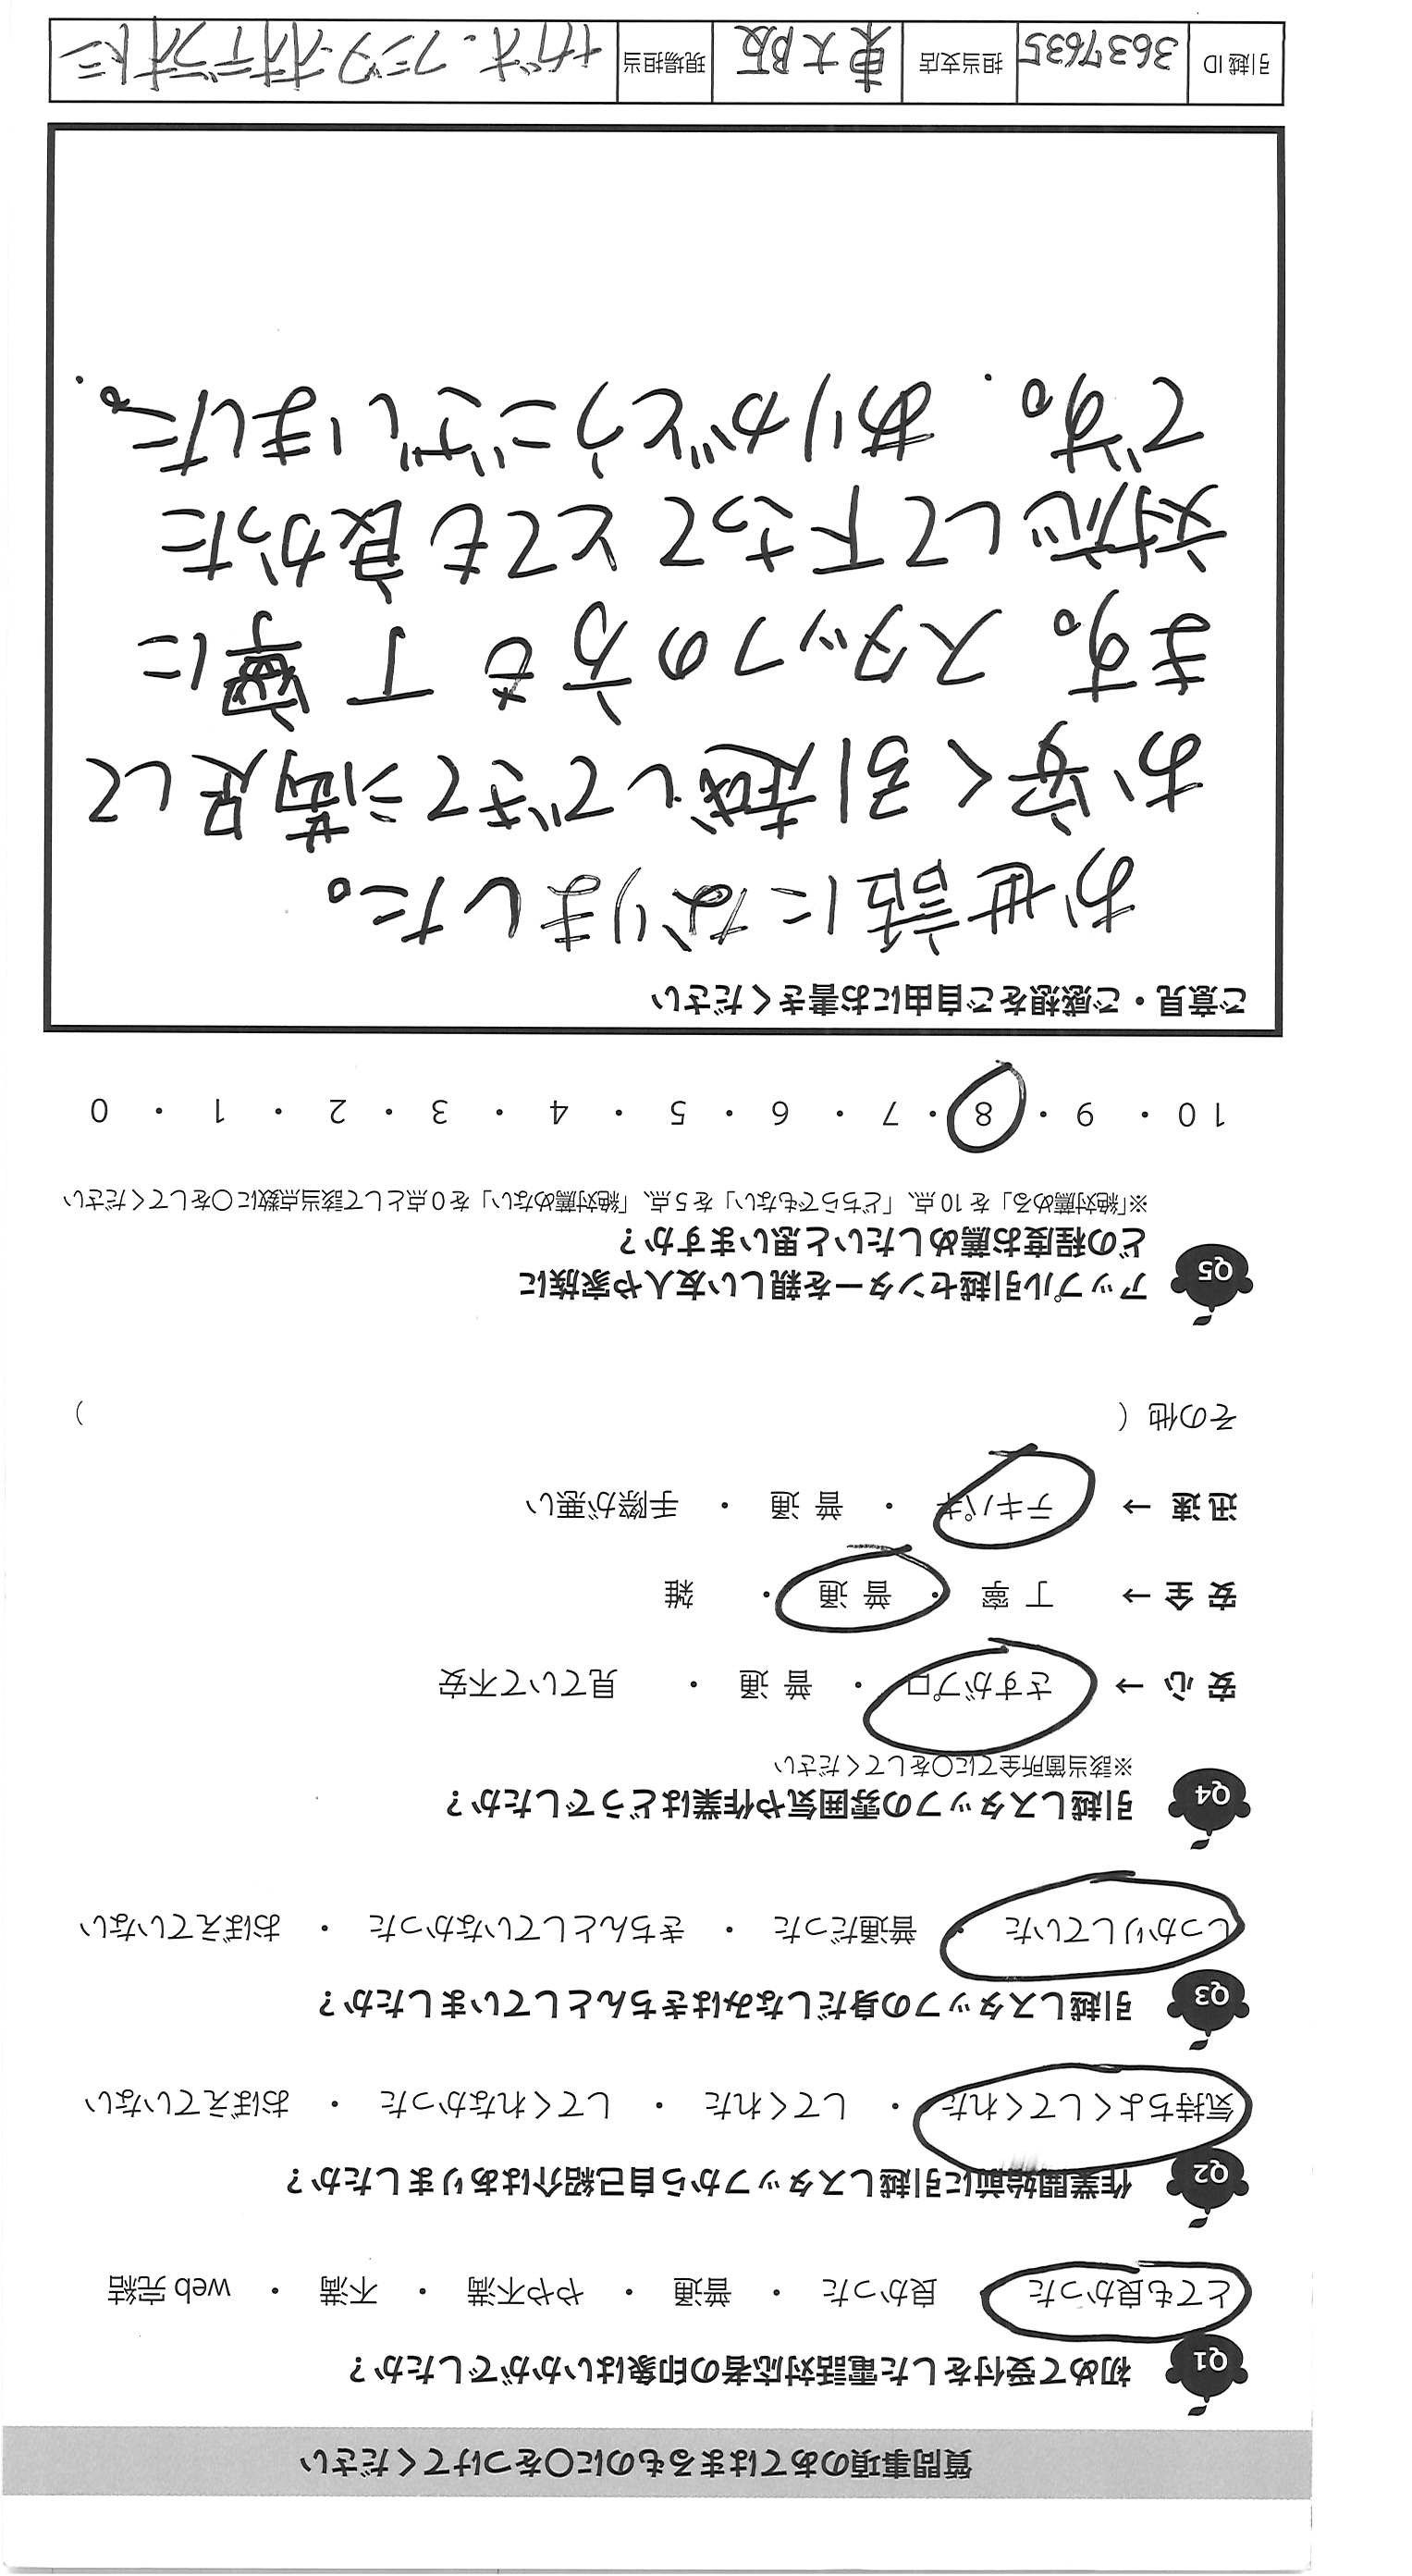 質問事項のあてはまるものに〇をつけてください
Q1 初めて受付をした電話対応者の印象はいかがでしたか？
とても良かった ・ 良かった ・ 普通 ・ やや不満 ・ 不満 ・ web 完結
Q2 作業開始前に引越しスタッフから自己紹介はありましたか？
気持ちよくしてくれた ・ してくれた ・ してくれなかった ・ おぼえていない
Q3 引越しスタッフの身だしなみはきちんとしていましたか？
しっかりしていた ・ 普通だった ・ きちんとしていなかった ・ おぼえていない
Q4 引越しスタッフの雰囲気や作業はどうでしたか？
※該当箇所全てに〇をしてください
安 心 → さすがプロ ・ 普 通 ・ 見ていて不安
安 全 → 丁 寧 ・ 普 通 ・ 雑
迅 速 → テキパキ ・ 普 通 ・ 手際が悪い
その他（ ）
Q5 アップル引越センターを親しい友人や家族に
どの程度お薦めしたいと思いますか？
※「絶対薦める」を 10 点、「どちらでもない」を 5 点、「絶対薦めない」を 0 点として該当点数に〇をしてください
10 ・ 9 ・ 8 ・ 7 ・ 6 ・ 5 ・ 4 ・ 3 ・ 2 ・ 1 ・ 0
ご意見・ご感想をご自由にお書きください
お世話になりました。
お安く引越しできて満足して
ます。スタッフの方も丁寧に
対応して下さってとても良かった
です。ありがとうございました。
引越 ID 3637635 担当支店 東大阪 現場担当